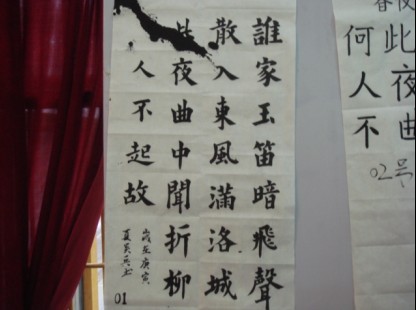 誰家玉笛暗飛聲
散入東風滿洛城
此夜曲中聞折柳
人不起故
歲在庚寅
01
此夜曲
何人不
02号